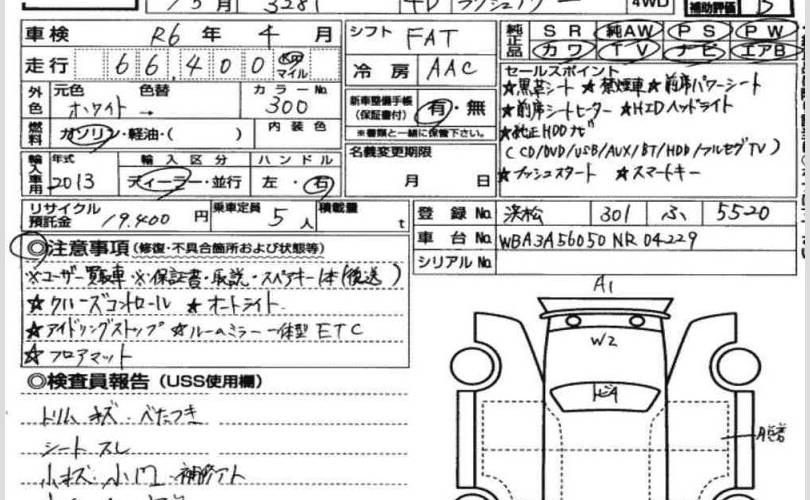 月 328i 4D 4WD
補助評価 D
車検 R6年 4月 シフト FAT
純正品 SR 純AW PS PW
カワ TV ナビ エアB
走行 66,400 km マイル 冷房 AAC
セールスポイント
★黒革シート ★禁煙車 ★前席パワーシート
★前席シートヒーター ★HIDヘッドライト
★純正HDDナビ
(CD/DVD/USB/AUX/BT/HDD/フルセグTV)
★プッシュスタート ★スマートキー
外色 元色 色替 カラーNo.
ホワイト → 300
新車整備手帳(保証書付) 有・無
※書類と一緒に保管下さい。
燃料 ガソリン・軽油・( ) 内装色
名義変更期限
月 日
輸入車用 年式 輸入区分 ハンドル
2013 ディーラー・並行 左・右
リサイクル預託金 19,400円 乗車定員 5人 積載量 t
登録No. 浜松 301 ふ 5520
車台No. WBA3A56050NR04229
シリアルNo.
◎注意事項(修復・不具合箇所および状態等)
※ユーザー買取車 ※保証書・取説・スペアキー1本(後送)
★クルーズコントロール ★オートライト
★アイドリングストップ ★ルームミラー一体型ETC
★フロアマット
◎検査員報告(USS使用欄)
トリム キズ・ベたつき
シート スレ
小キズ・小凹・補修アト
A1
W2